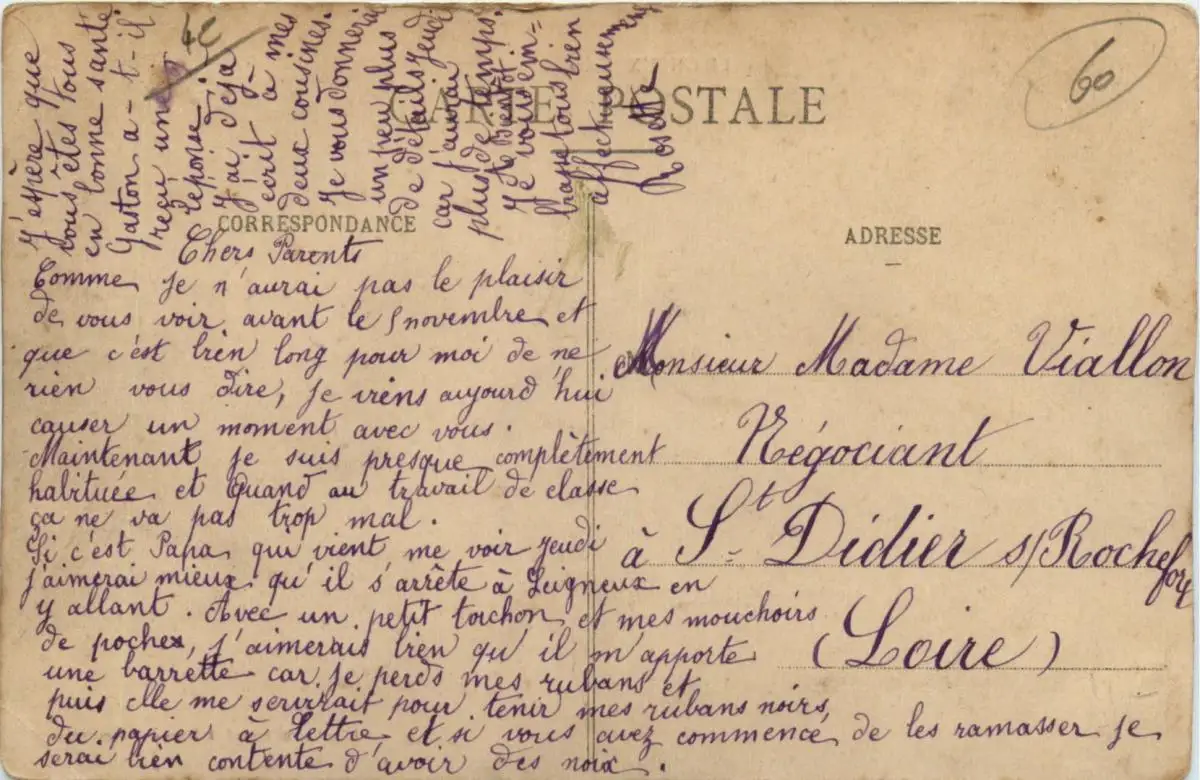 CARTE POSTALE
60
4E
CORRESPONDANCE
ADRESSE
Chers Parents
Comme je n'aurai pas le plaisir
de vous voir avant le 5 novembre et
que c'est bien long pour moi de ne
rien vous dire, je viens aujourd'hui
causer un moment avec vous.
Maintenant je suis presque complètement
habituée et quand au travail de classe
ça ne va pas trop mal.
Si c'est Papa qui vient me voir jeudi
j'aimerai mieux qu'il s'arrête à Leigneux en
y allant. Avec un petit torchon et mes mouchoirs
de poches, j'aimerais bien qu'il m'apporte
une barrette car je perds mes rubans et
puis elle me servirait pour tenir mes rubans noirs,
du papier à lettre et si vous avez commencé de les ramasser je
serai bien contente d'avoir des noix.
J'espère que
vous êtes tous
en bonne santé
Gaston a-t-il
reçu une
réponse ?
J'ai déjà
écrit à mes
deux cousines.
Je vous donnerai
un peu plus
de détails jeudi
car j'aurai
plus de temps.
À bientôt.
Je vous em-
brasse tous bien
affectueusement
Rosette
Monsieur Madame Viallon
Négociant
à St Didier s/Rochefort
(Loire)